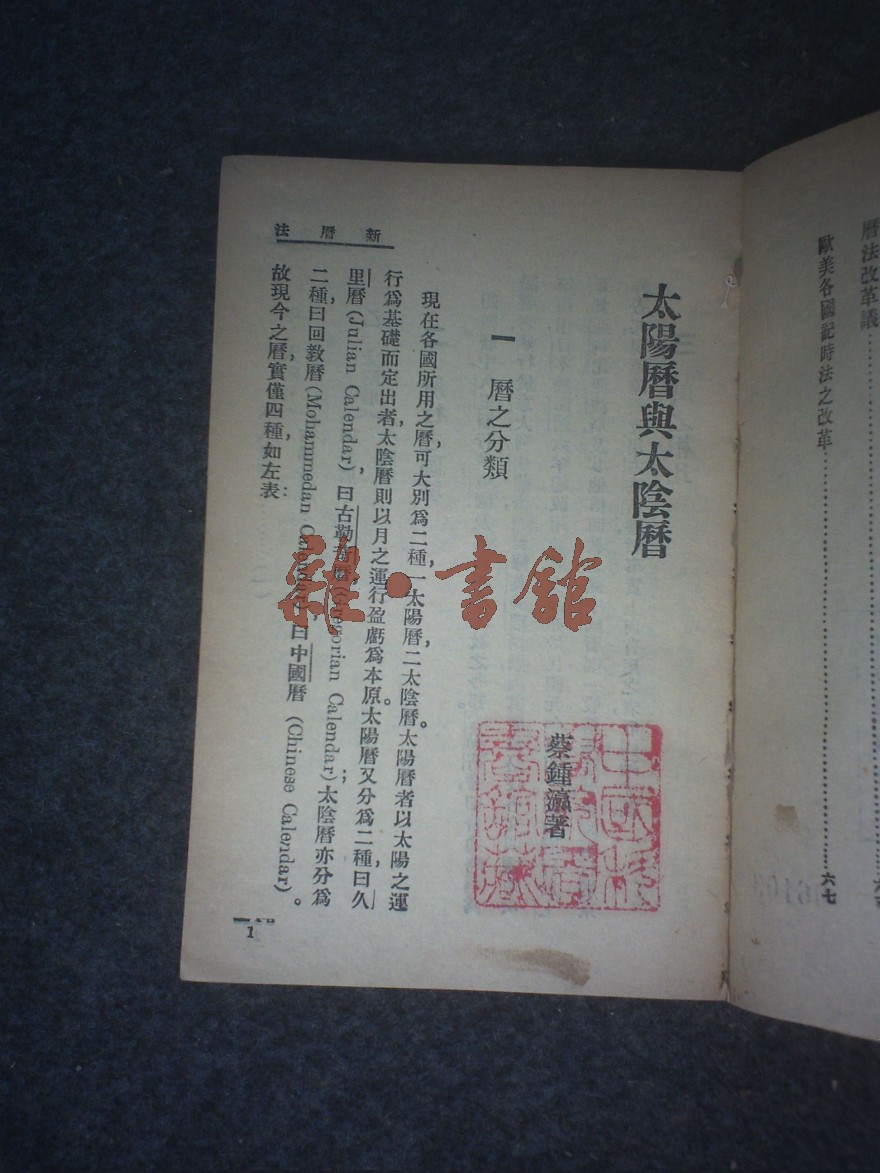 曆法改革議……………………六
歐美各國記時法之改革……………………六七
太陽曆與太陰曆
蔡鍾瀛著
一 曆之分類
現在各國所用之曆,可大別爲二種,一太陽曆,二太陰曆。太陽曆者以太陽之運
行爲基礎而定出者,太陰曆則以月之運行盈虧爲本原。太陽曆又分爲二種,曰久
里曆(Julian Calendar),曰古勒哥曆(Gregorian Calendar);太陰曆亦分爲
二種,曰回敎曆(Mohammedan Calendar),曰中國曆 (Chinese Calendar)。
故現今之曆,實僅四種,如左表:
新曆法
1
雜·書館